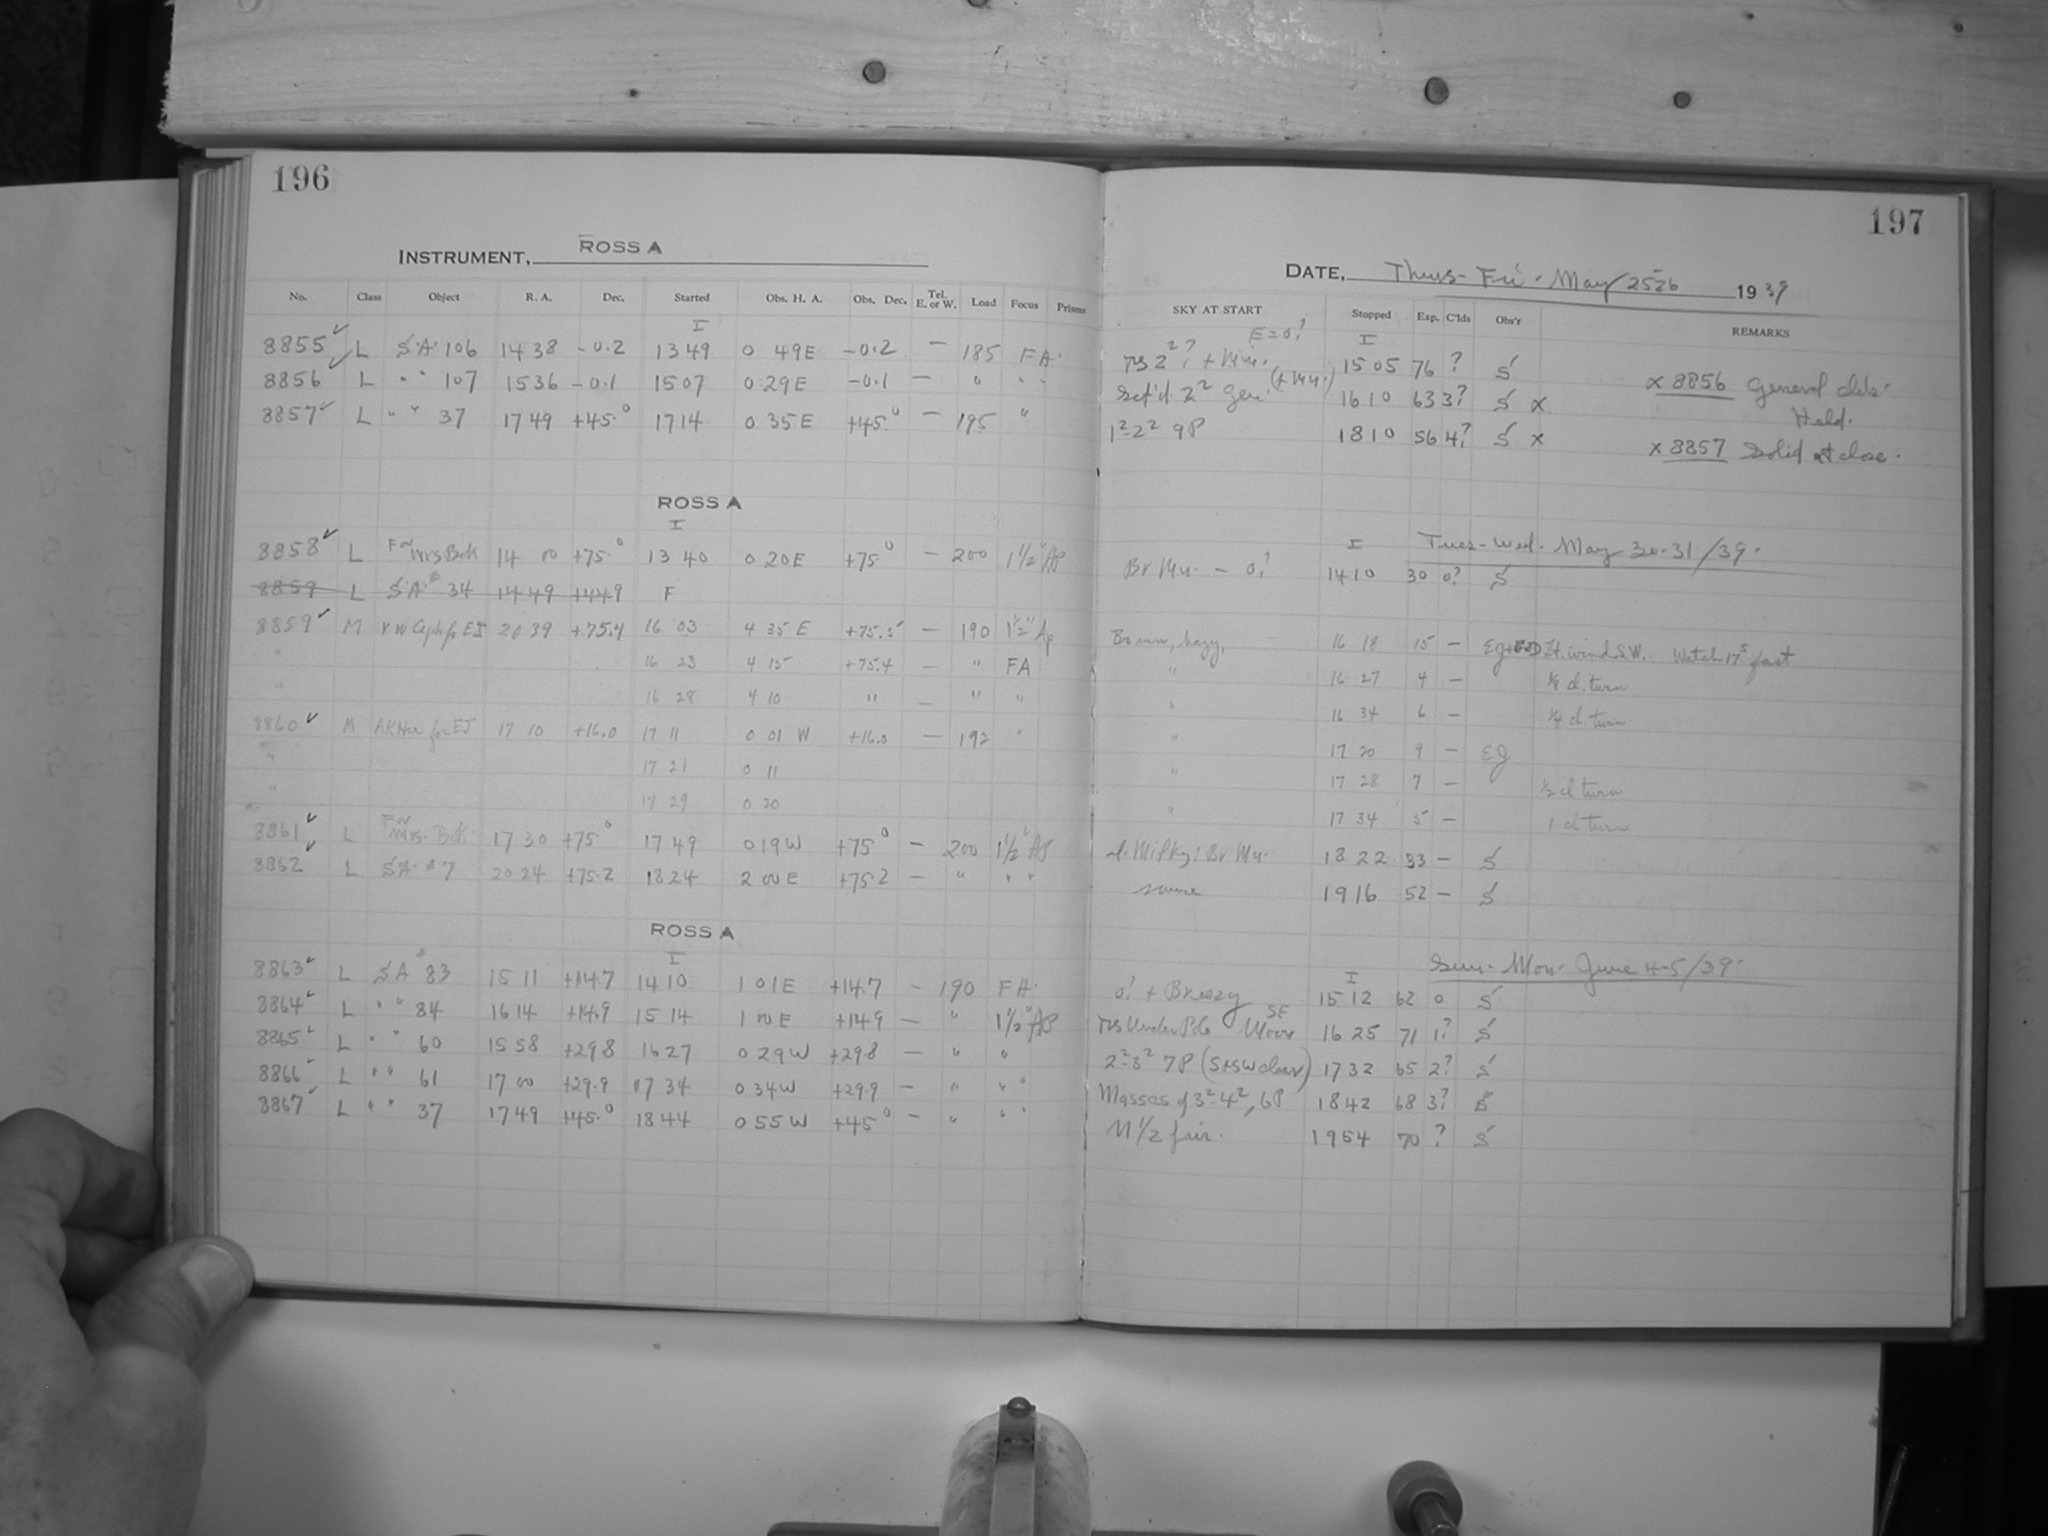 196
INSTRUMENT, ROSS A
No. Class Object R. A. Dec. Started Obs. H. A. Obs. Dec. Tel. E. or W. Load Focus Prisms
I
8855 ✓ L S.A. 106 14 38 -0.2 13 49 0 49 E -0.2 — 185 FA.
8856 ✓ L " " 107 15 36 -0.1 15 07 0 29 E -0.1 — " " "
8857 ✓ L " " 37 17 49 +45.° 17 14 0 35 E +45.° — 195 "
ROSS A
I
8858 ✓ L For Mrs Bok 14 00 +75.° 13 40 0 20 E +75° — 200 1½" Ap
8859 L S.A. 34 14 49 +44.9 F
8859 ✓ M VW Ceph for EJ 20 39 +75.4 16 03 4 35 E +75.5 — 190 1½" Ap
" 16 23 4 15 +75.4 — " FA
" 16 28 4 10 " — " "
8860 ✓ M AK Her for EJ 17 10 +16.0 17 11 0 01 W +16.0 — 192 "
" 17 21 0 11
" 17 29 0 20
8861 ✓ L For Mrs. Bok 17 30 +75.° 17 49 0 19 W +75° — 200 1½" Ap
8862 ✓ L S.A. #7 20 24 +75.2 18 24 2 00 E +75.2 — " " "
ROSS A
I
8863 ✓ L S A # 83 15 11 +14.7 14 10 1 01 E +14.7 — 190 FA.
8864 ✓ L " " 84 16 14 +14.9 15 14 1 00 E +14.9 — " 1½" Ap
8865 ✓ L " " 60 15 58 +29.8 16 27 0 29 W +29.8 — " "
8866 ✓ L " " 61 17 00 +29.9 17 34 0 34 W +29.9 — " " "
8867 ✓ L " " 37 17 49 +45.° 18 44 0 55 W +45° — " " "
197
DATE, Thurs- Fri. May 25-26 1939
SKY AT START Stopped Exp. C'lds Obs'r REMARKS
E=0? I
2²? + 15 05 76 ? S
2² Gen. 16 10 63 3? S x x 8856 General
Held.
1²-2² 9P 18 10 56 4? S x x 8857 Solid at close.
I Tues-Wed. May 30-31/39.
Br Mn. — 0? 14 10 30 0? S
Br moon, hazy, 16 18 15 — EG lt. wind SW. Watch 17ˢ fast
" 16 27 4 — ⅛ d. turn
" 16 34 6 — ¼ d. turn
" 17 20 9 — EG
" 17 28 7 — ½ d turn
" 17 34 5 — 1 d turn
Milky: Br Mn. 18 22 33 — S
same 19 16 52 — S
Sun- Mon- June 4-5/39.
I
0? + Breezy 15 12 62 0 S
Under Pole SE Moon 16 25 71 1? S
2²-3² 7P (S+SW clear) 17 32 65 2? S
Masses of 3²-4², 6P 18 42 68 3? S
M ½ fair. 19 54 70 ? S